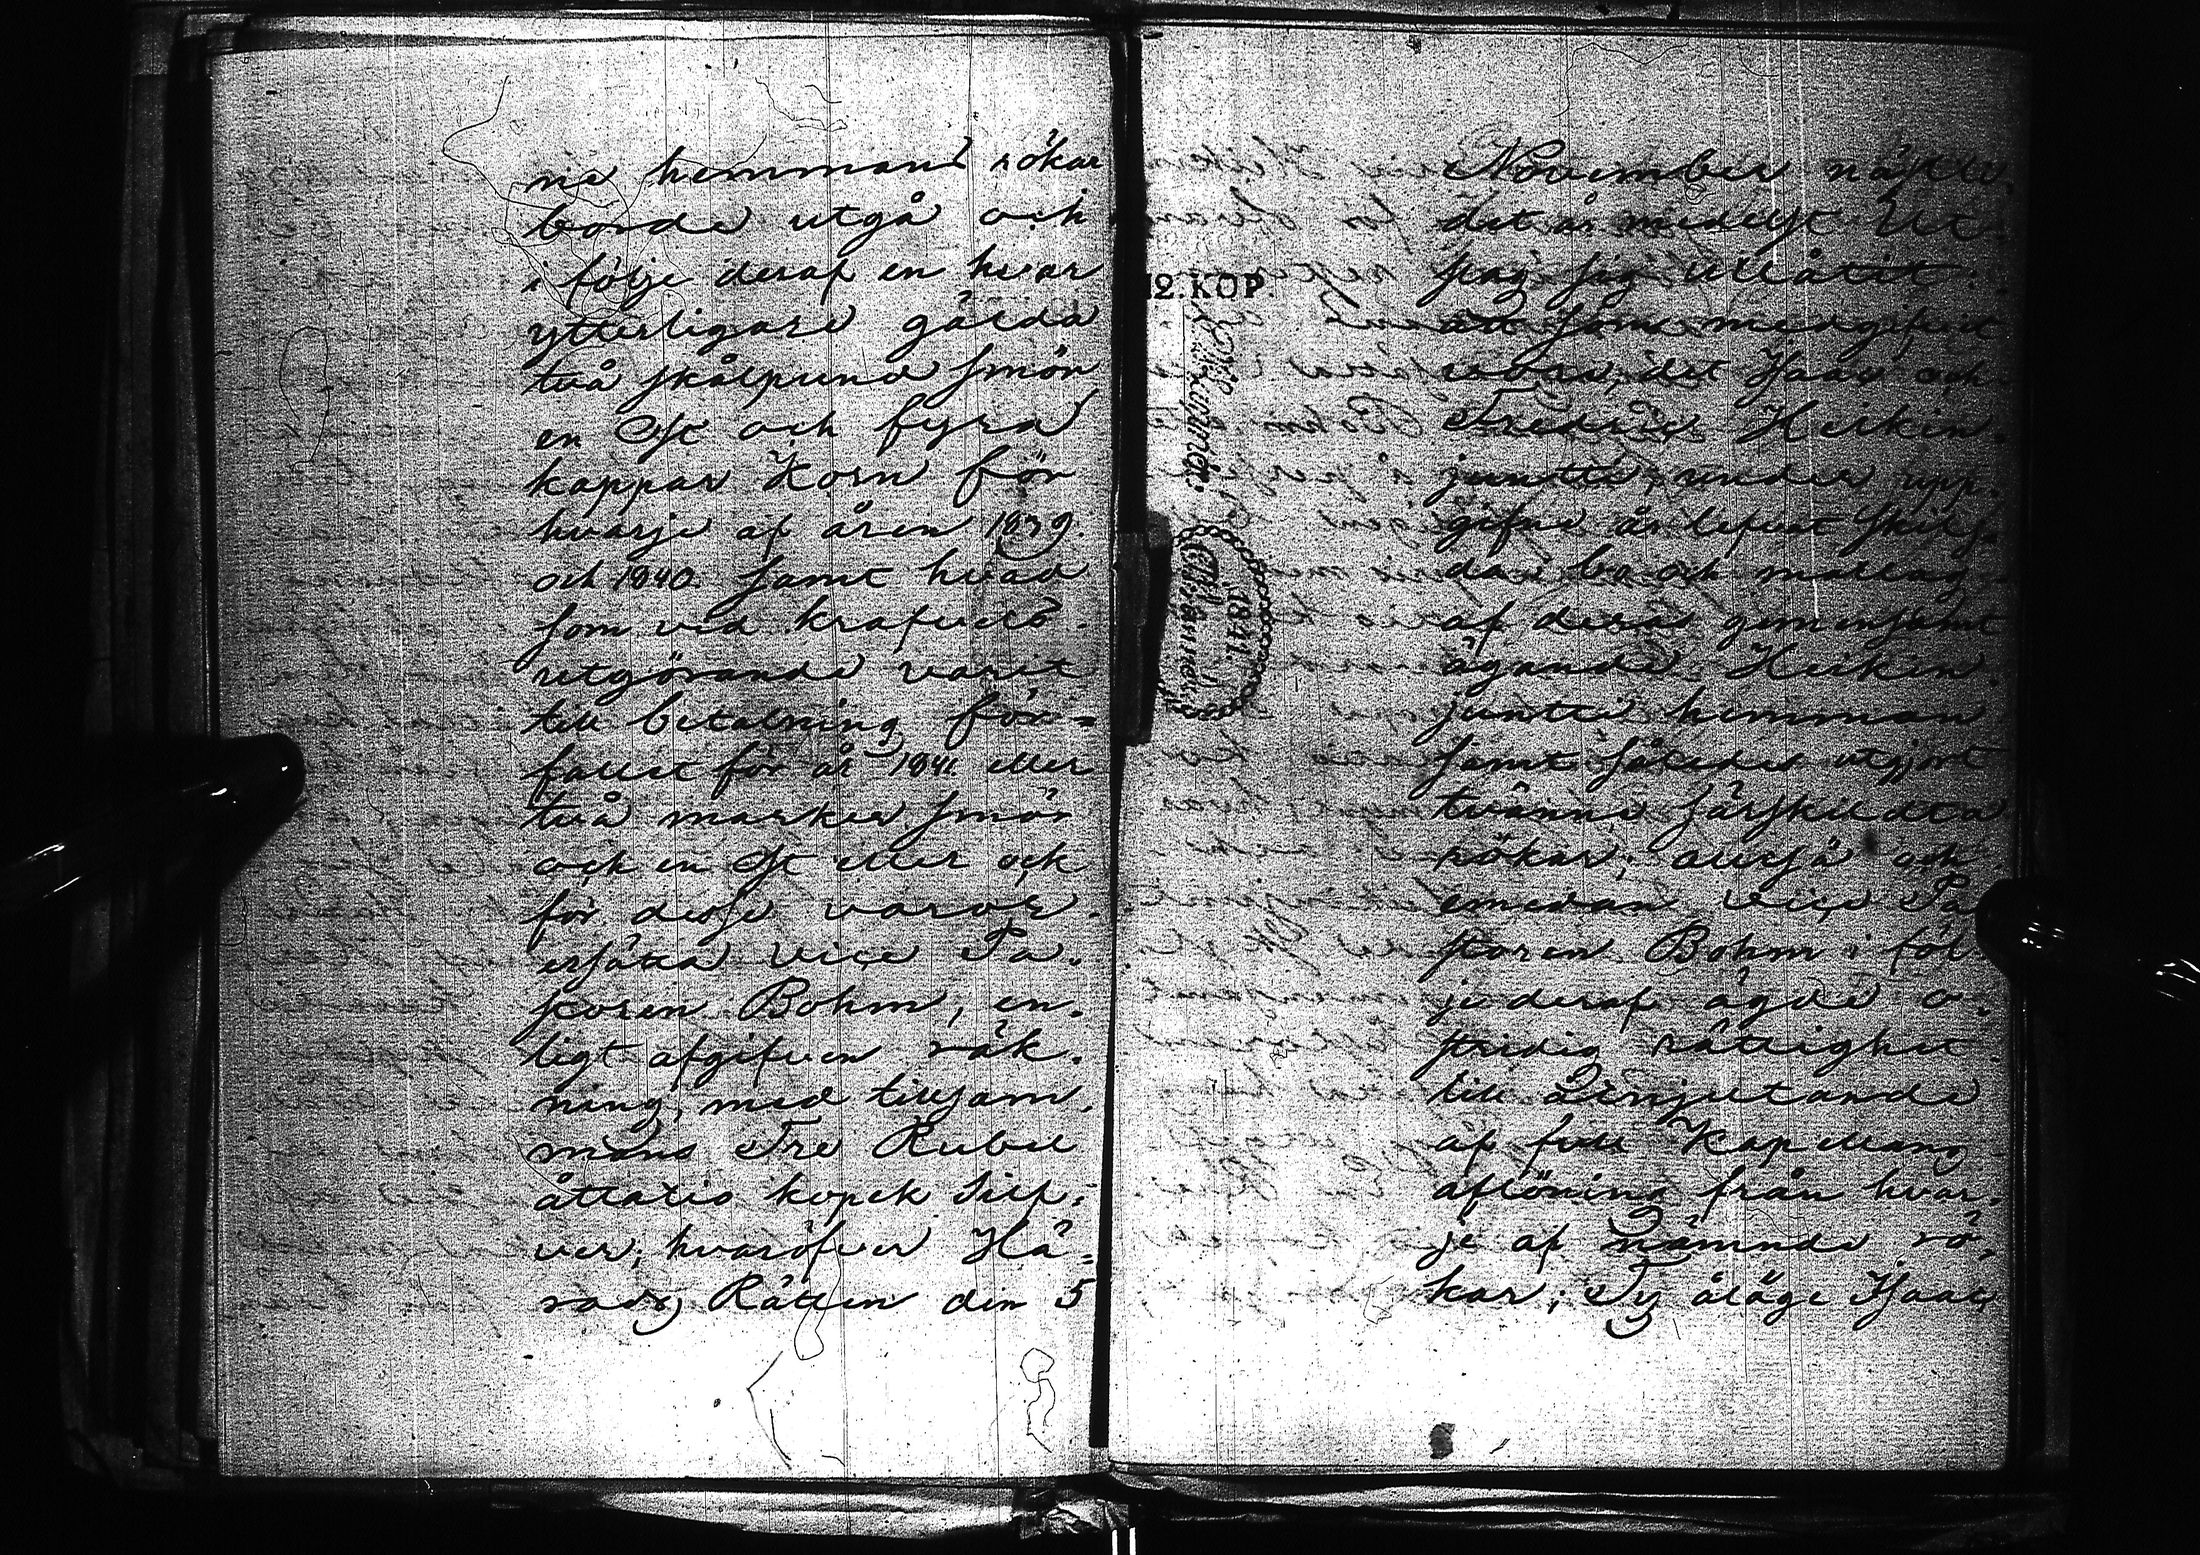 na hemmans rökar
borde utgå och
i följe deraf en hvar
ytterligare gälda
två skålpund smör
en Ost och fyra
kappar Korn för
hvarje af åren 1839
och 1840 samt hvad
som vid krafvets
utgörande varit
till betalning för=
fallet för år 1841 eller
två marker smör
och en Ost eller ock
för desse varor
ersätta vice Pa
storen Bohm, en
ligt afgifven räk
ning, med tillsam
mans Tre Rubel
åttatio kopek Silf
ver; hvaröfver Hä=
rads Rätten den 5
12. KOP.
1841.
November näst
det år medelst Ut
slag sig utlåtit:
att som medgifvit
vore, det Isaac och
Fredric Heikin
juntti, under upp
gifne år lefvat skilj
da i bo och matlag
af deras gemensamt
ägande Heikin
juntti hemman
samt således utgjort
tvänne särskildta
rökar; alltså och
emedan vice Pa
storen Bohm i föl
je deraf ägde o
stridig rättighet
till åtnjutande
af full Kapellans
aflöning från hvar
je af nämnde rö
kar; Ty ålåge Isaac